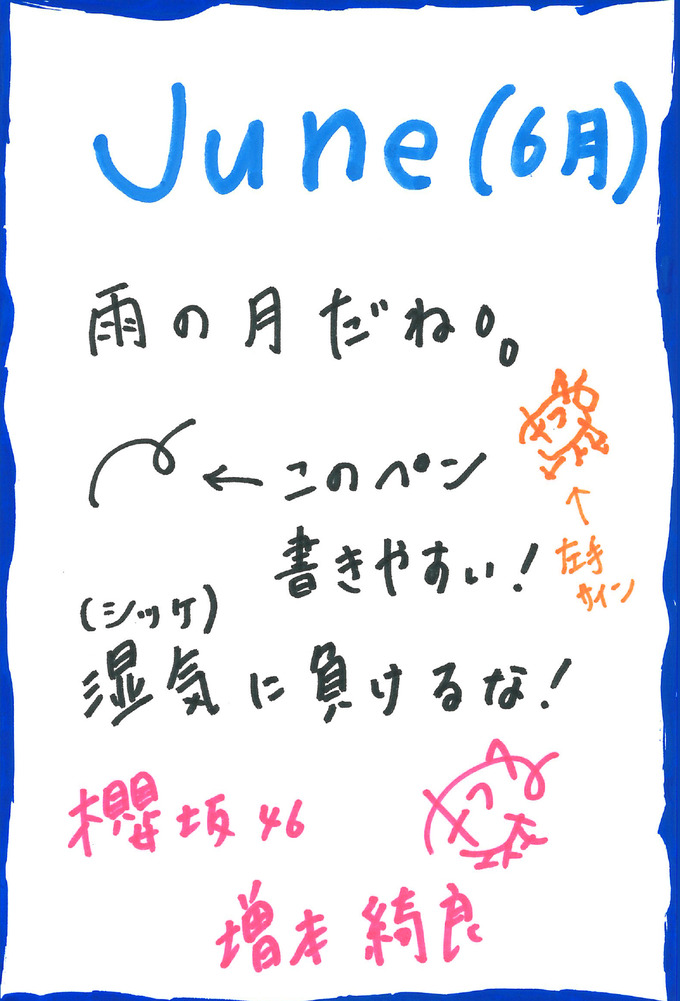 June(6月)
雨の月だね。。
←このペン
書きやすい!
↑
左手
サイン
(シッケ)
湿気に負けるな!
櫻坂46
増本綺良